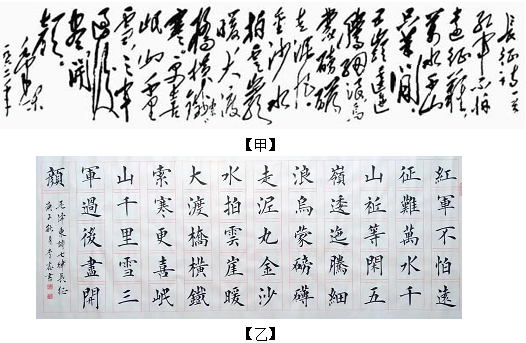 長征诗一首
紅軍不怕
遠征難
萬水千山
只等闲
五嶺逶迤
騰細浪烏
蒙磅礴
走泥丸
金沙水
拍雲崖
暖大渡
橋橫鐵索
寒更喜
岷山千里
雪三军
過後
盡開
顏
毛澤東
一九六二年
【甲】
紅軍不怕遠
征難萬水千
山祗等閑五
嶺逶迤騰細
浪烏蒙磅礴
走泥丸金沙
水拍雲崖暖
大渡橋橫鐵
索寒更喜岷
山千里雪三
軍過後盡開
顏
毛澤東詩七律長征
庚子秋月李書
【乙】